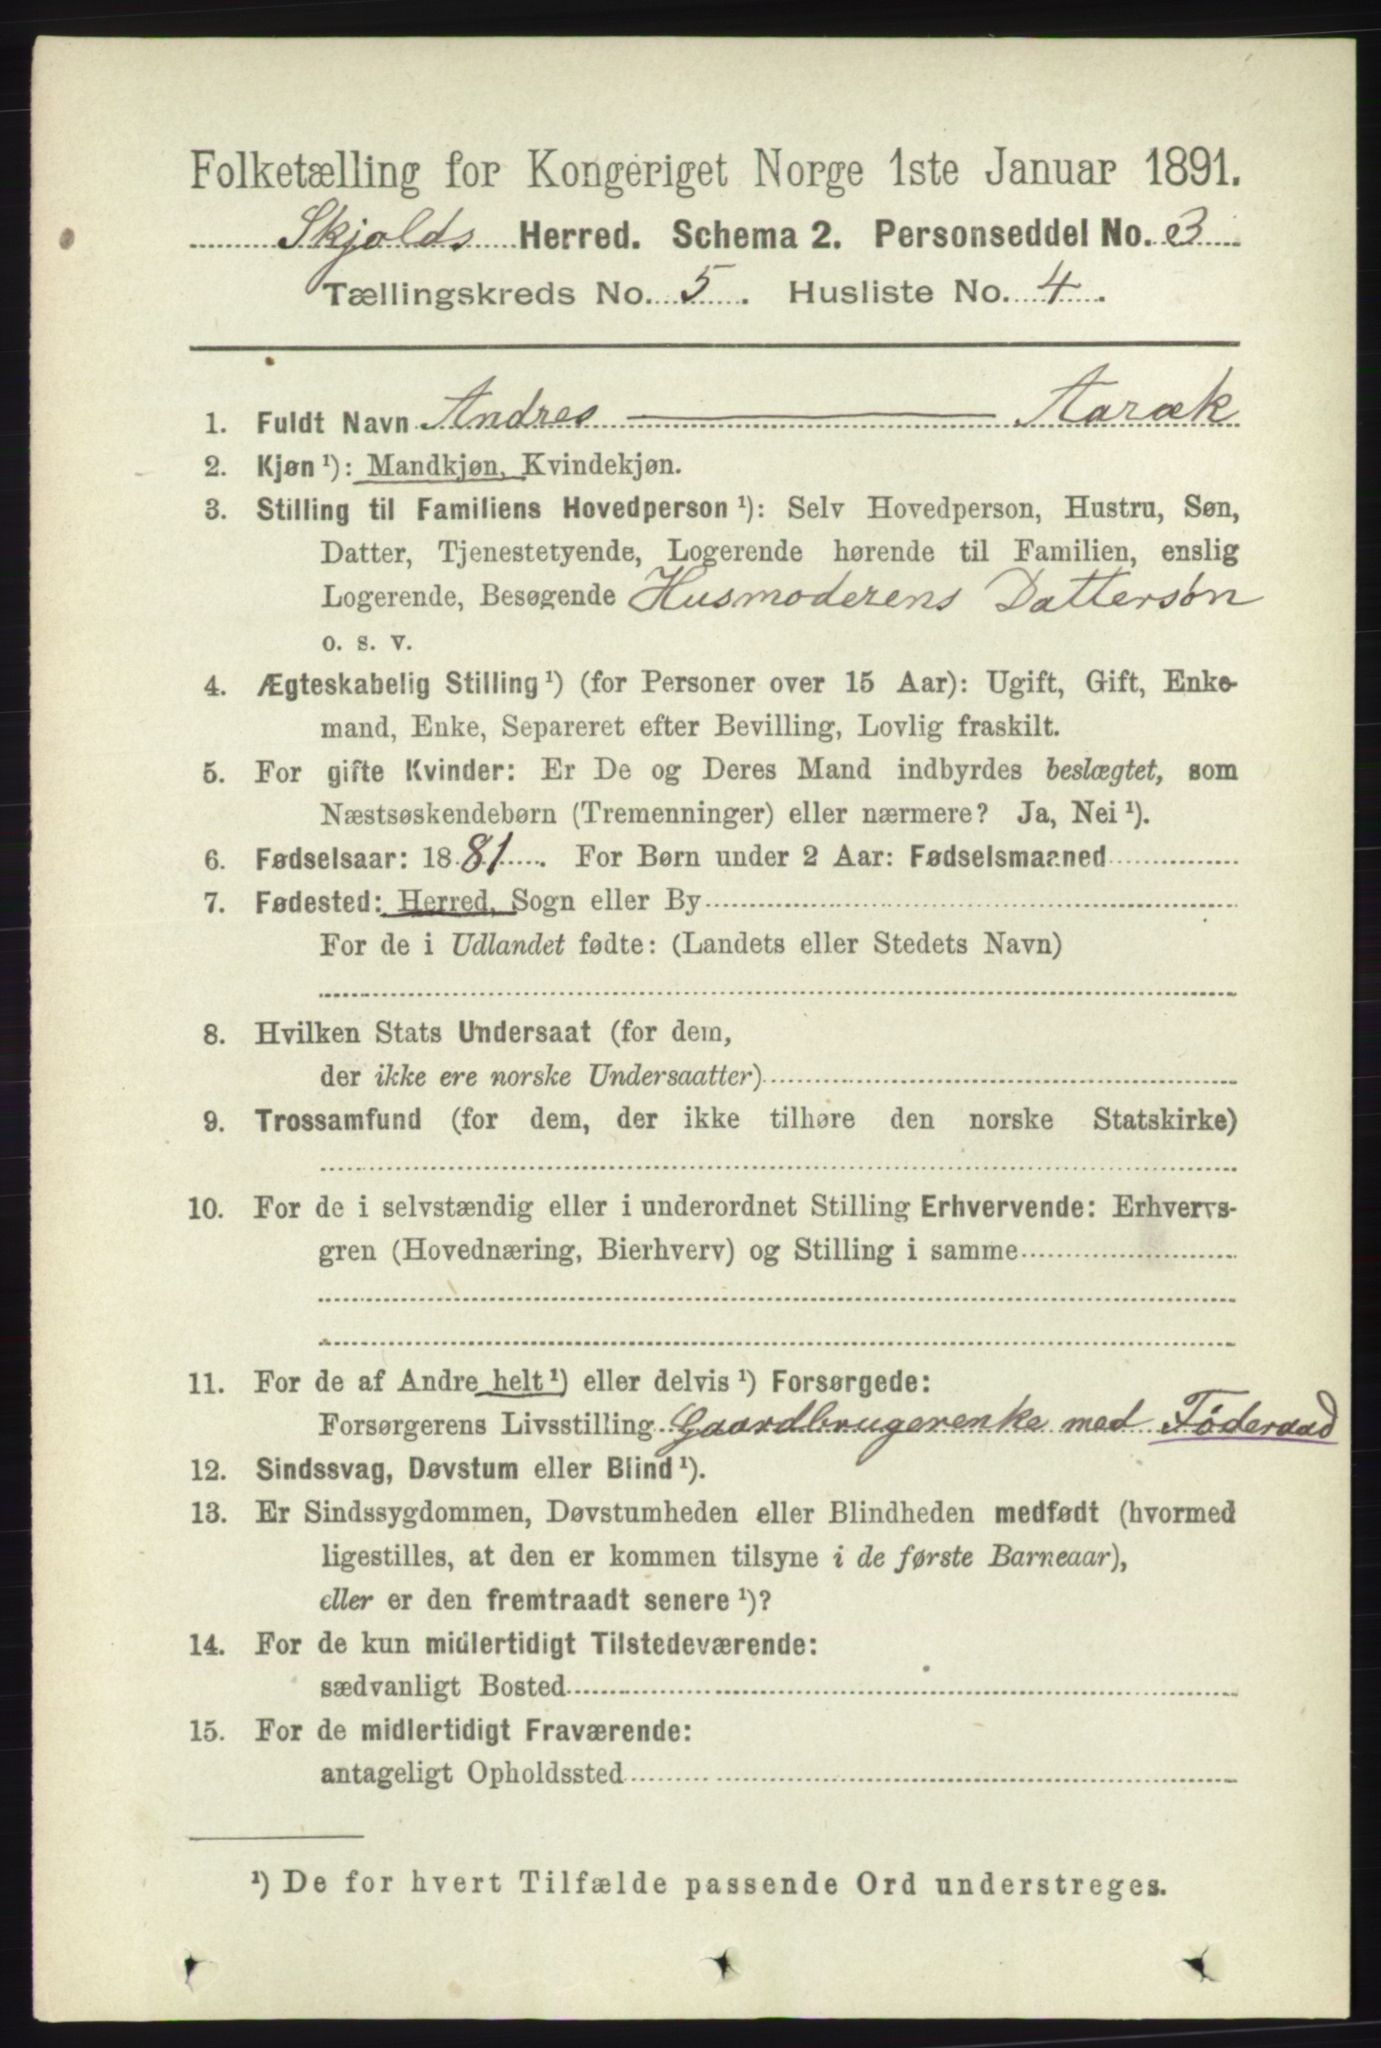 Folketælling for Kongeriget Norge 1ste Januar 1891.
Skjolds Herred. Schema 2. Personseddel No. 3
Tællingskreds No. 5. Husliste No. 4.
1. Fuldt Navn Andres Aaræk
2. Kjøn ¹): Mandkjøn, Kvindekjøn.
3. Stilling til Familiens Hovedperson ¹): Selv Hovedperson, Hustru, Søn,
Datter, Tjenestetyende, Logerende hørende til Familien, enslig
Logerende, Besøgende Husmoderens Dattersøn
o. s. v.
4. Ægteskabelig Stilling ¹) (for Personer over 15 Aar): Ugift, Gift, Enke-
mand, Enke, Separeret efter Bevilling, Lovlig fraskilt.
5. For gifte Kvinder: Er De og Deres Mand indbyrdes beslægtet, som
Næstsøskendebørn (Tremenninger) eller nærmere? Ja, Nei ¹).
6. Fødselsaar: 1881. For Børn under 2 Aar: Fødselsmaaned
7. Fødested: Herred, Sogn eller By
For de i Udlandet fødte: (Landets eller Stedets Navn)
8. Hvilken Stats Undersaat (for dem,
der ikke ere norske Undersaatter)
9. Trossamfund (for dem, der ikke tilhøre den norske Statskirke)
10. For de i selvstændig eller i underordnet Stilling Erhvervende: Erhvervs-
gren (Hovednæring, Bierhverv) og Stilling i samme
11. For de af Andre helt ¹) eller delvis ¹) Forsørgede:
Forsørgerens Livsstilling Gaardbrugerenke med Föderaad
12. Sindssvag, Døvstum eller Blind ¹).
13. Er Sindssygdommen, Døvstumheden eller Blindheden medfødt (hvormed
ligestilles, at den er kommen tilsyne i de første Barneaar),
eller er den fremtraadt senere ¹)?
14. For de kun midlertidigt Tilstedeværende:
sædvanligt Bosted
15. For de midlertidigt Fraværende:
antageligt Opholdssted
¹) De for hvert Tilfælde passende Ord understreges.